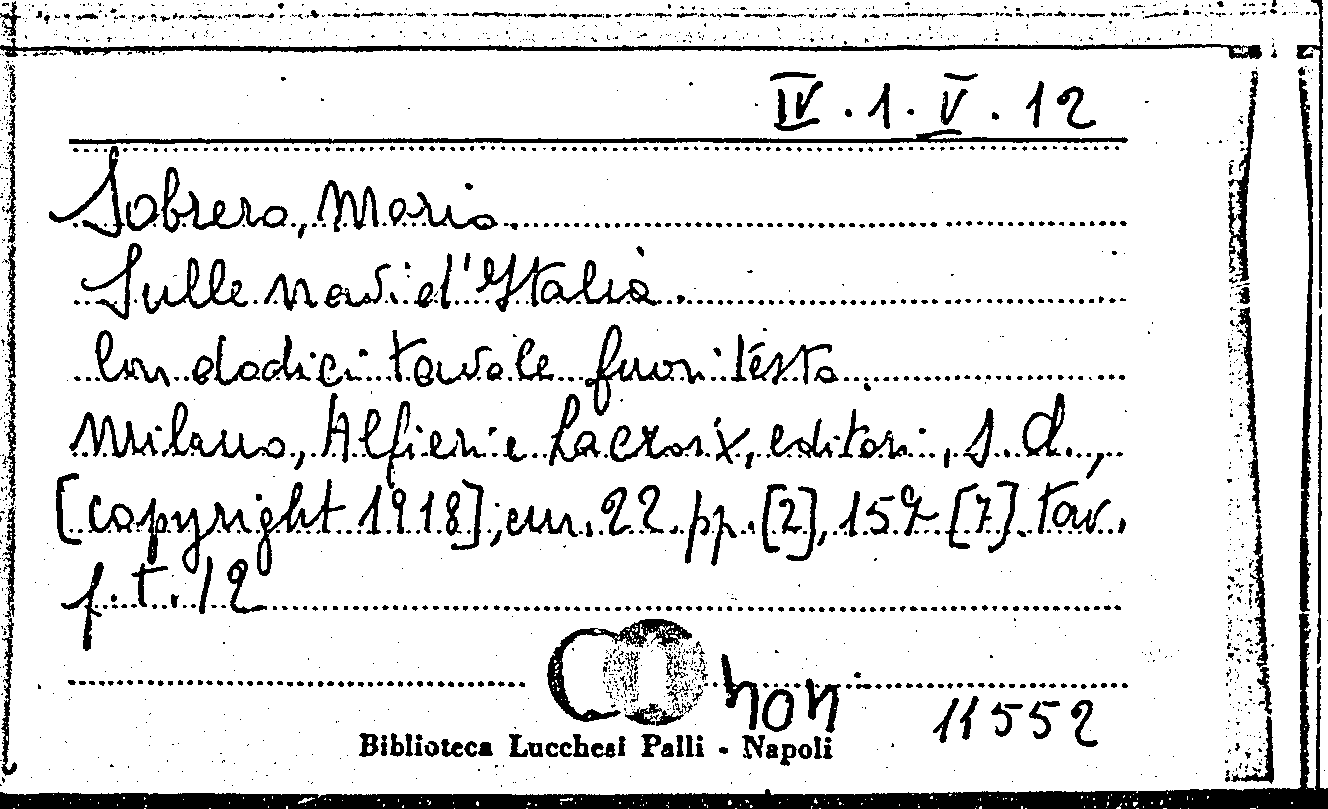 IV.1.V.12
Sobrero, Mario.
Sulle navi d'Italia.
Con dodici tavole fuori testo.
Milano, Alfieri e Lacroix, editori, s.d.,
[copyright 1918]; cm. 22 pp. [2], 157 [7]. tav.
f.t. 12
11552
Biblioteca Lucchesi Palli - Napoli